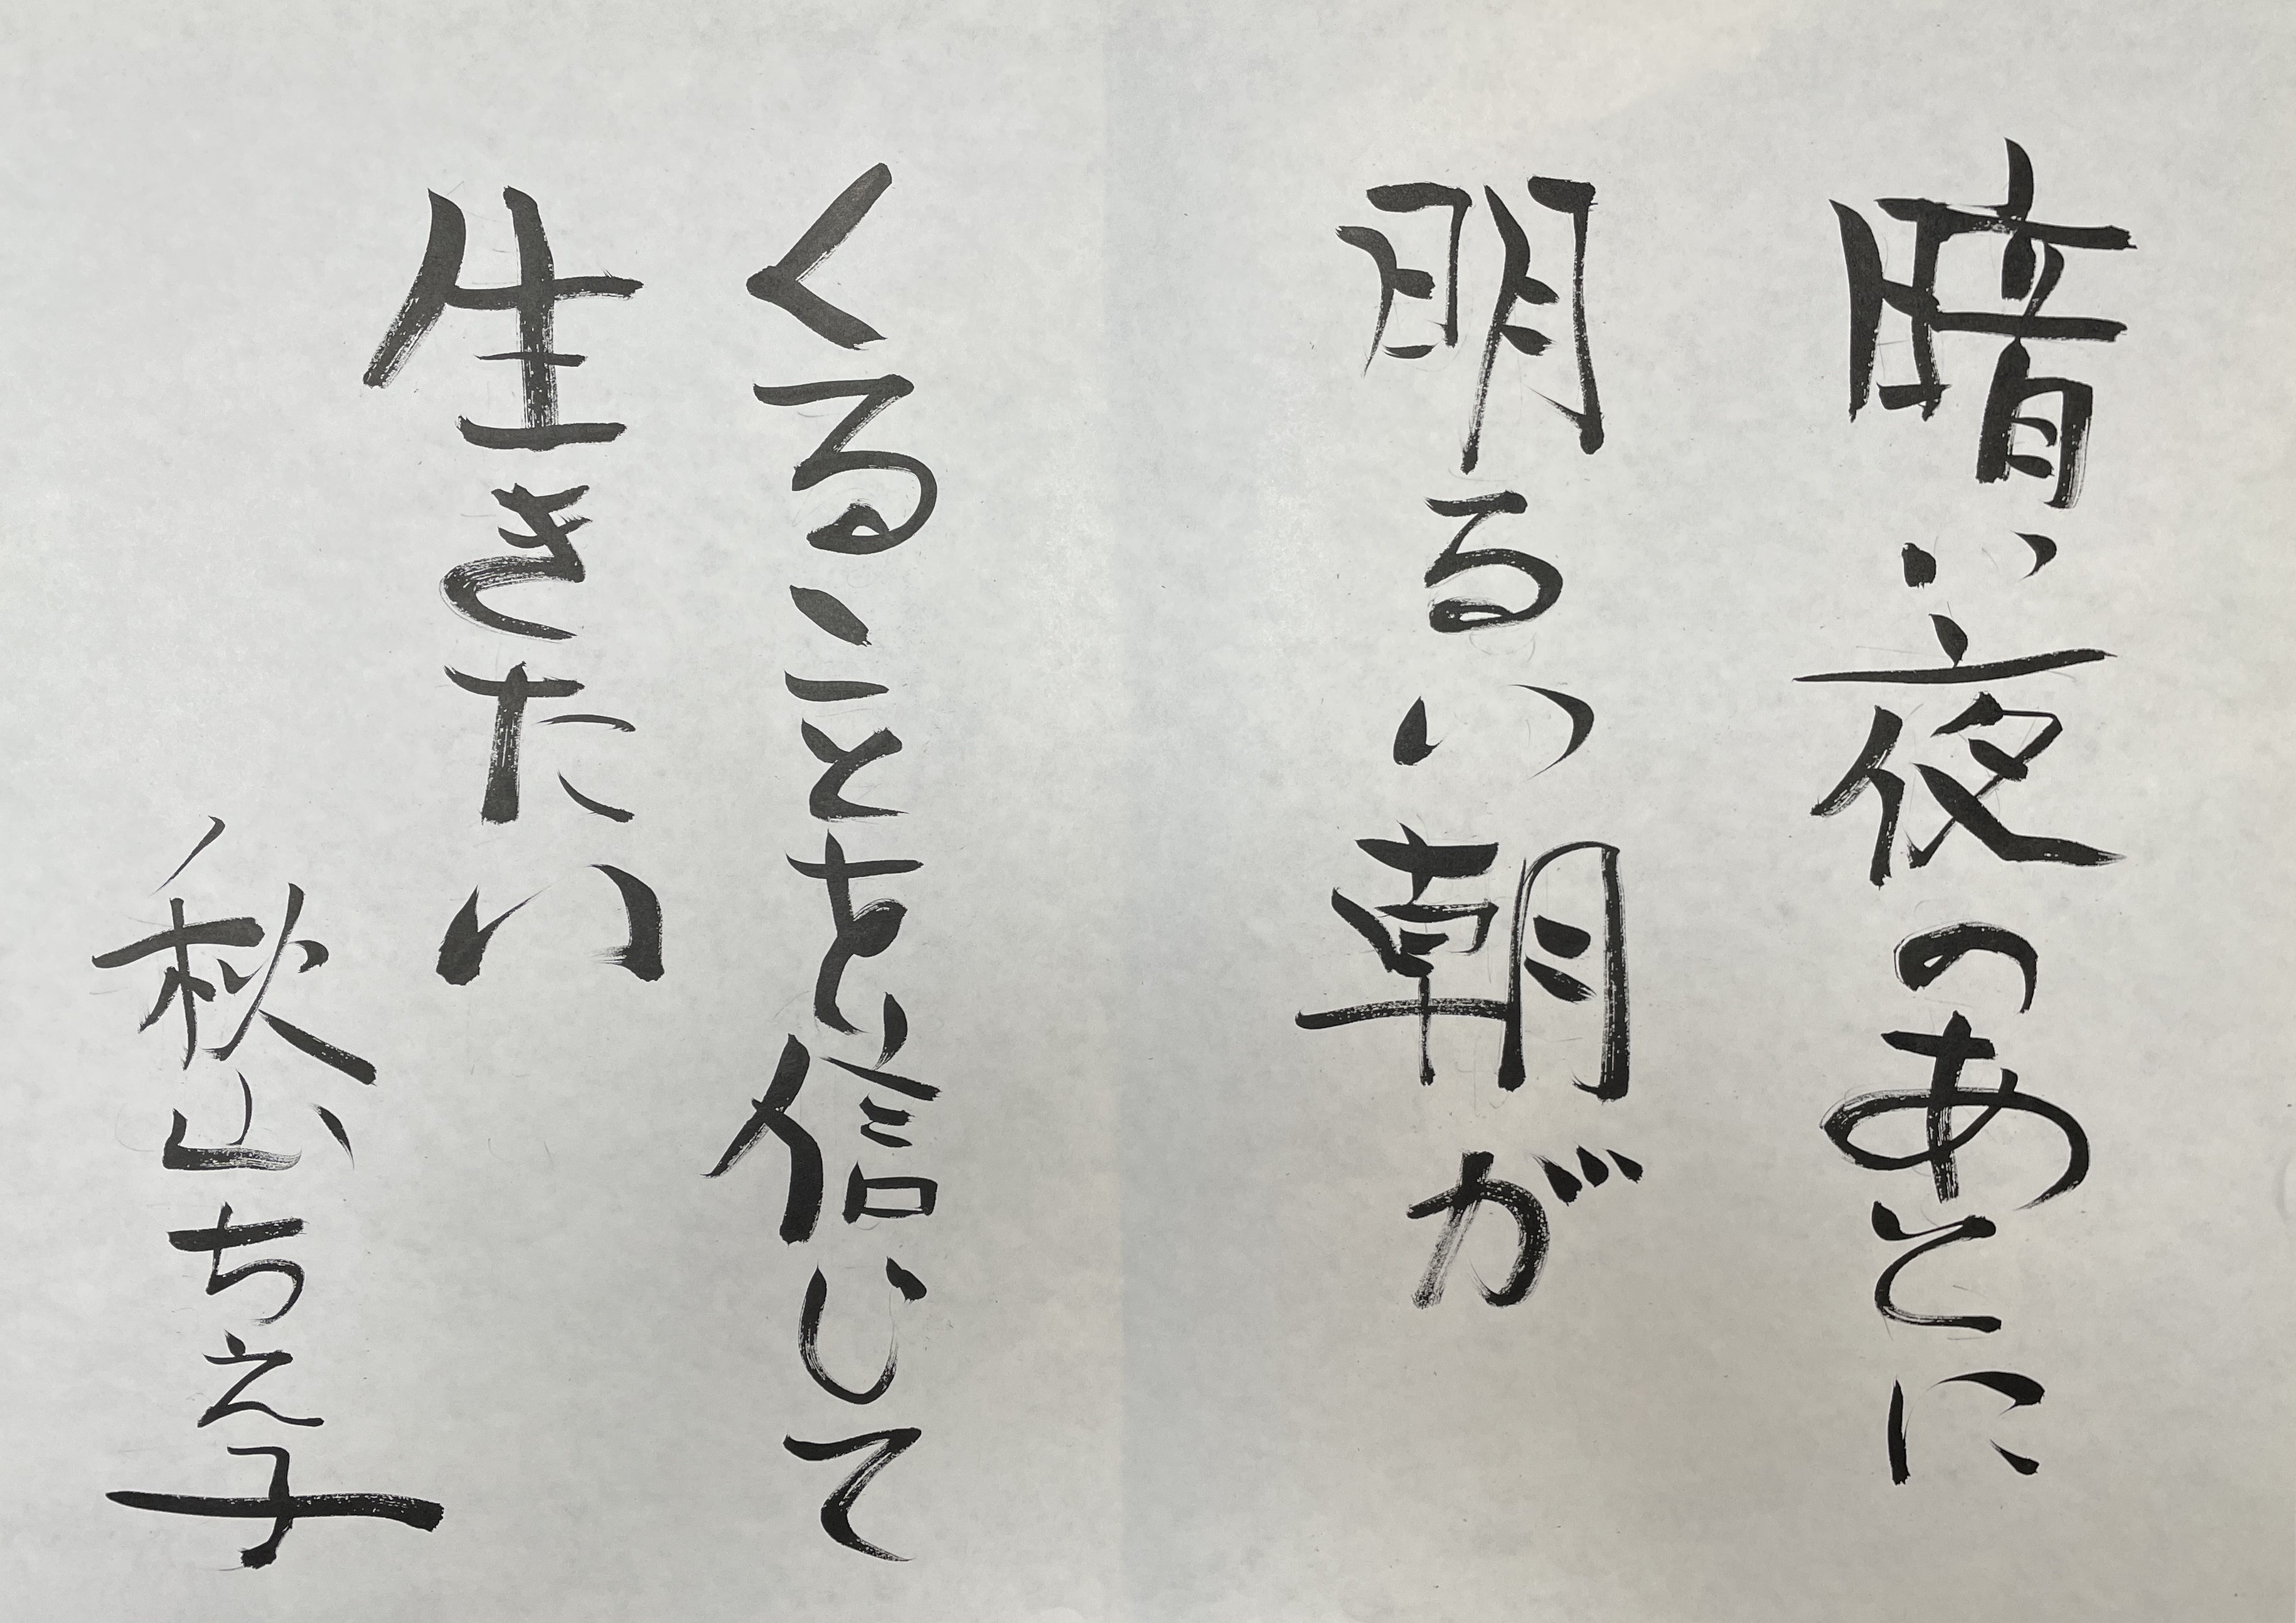 暗い夜のあとに
明るい朝が
くることを信じて
生きたい
秋山ちえ子